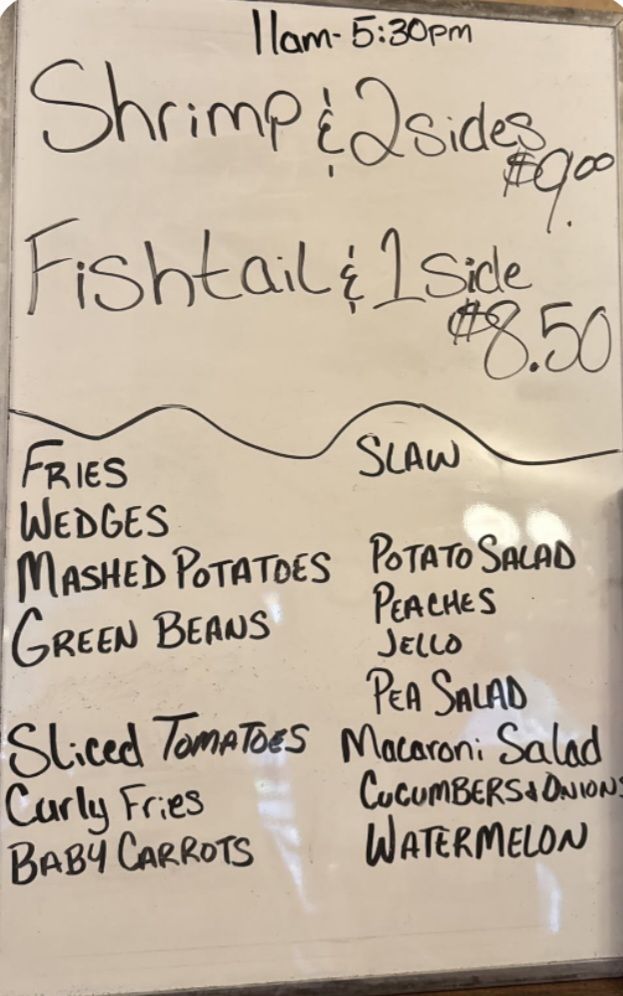 11am-5:30pm
Shrimp & 2 sides
$9.00
Fishtail & 1 side
$8.50
FRIES
WEDGES
MASHED POTATOES
GREEN BEANS
Sliced TOMATOES
Curly Fries
BABY CARROTS
SLAW
POTATO SALAD
PEACHES
JELLO
PEA SALAD
Macaroni Salad
CUCUMBERS & ONIONS
WATERMELON